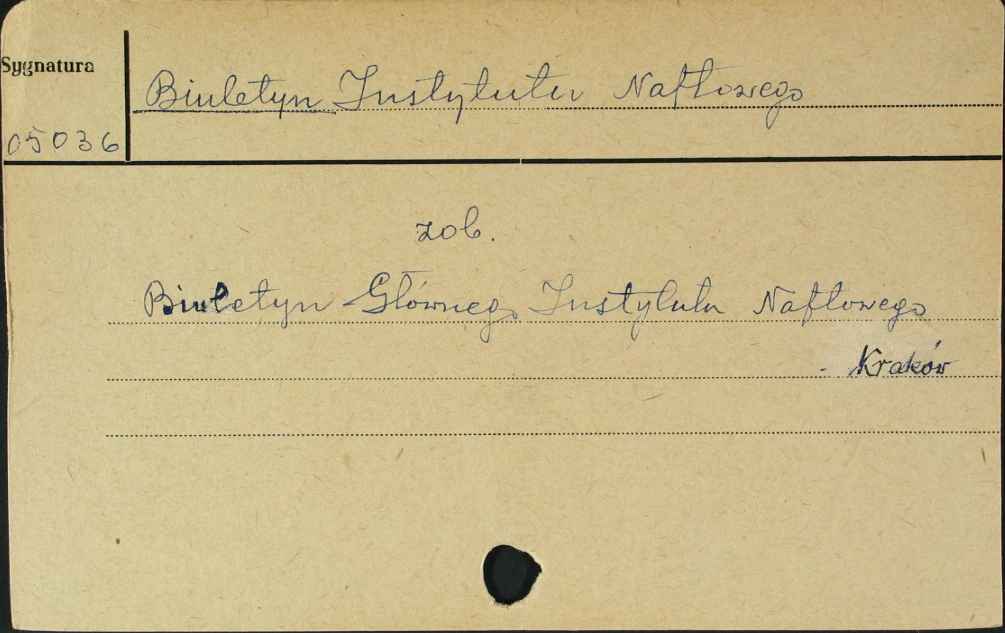 Sygnatura
Biuletyn Instytutu Naftowego
05036
zob.
Biuletyn Głównego Instytutu Naftowego
Kraków